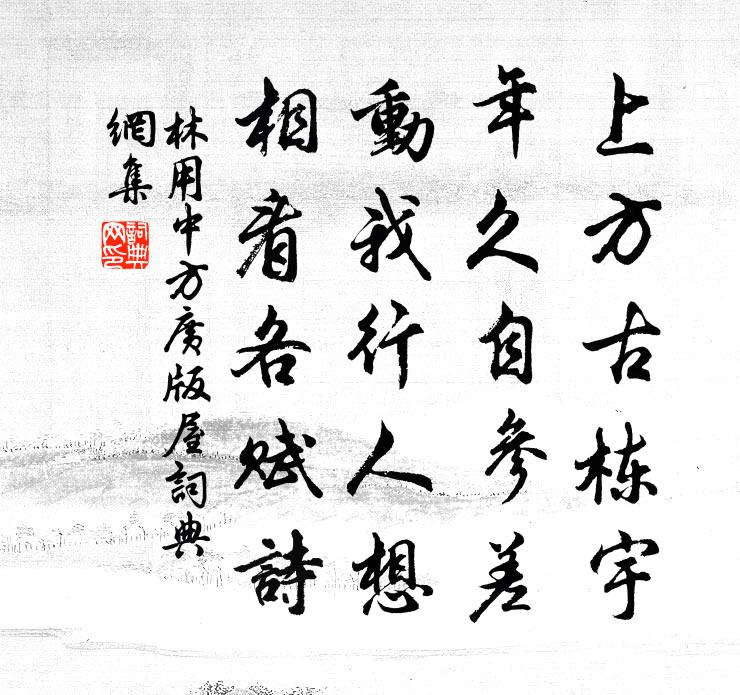 上方古栋宇
年久自參差
動我行人想
相看各赋詩
林用中方廣版屋詞典
網集
詞典
网印